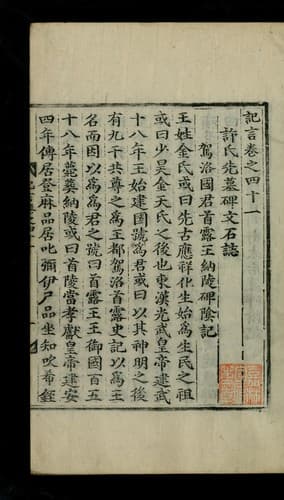 記言卷之四十一
許氏先墓碑文石誌
駕洛國君首露王納陵碑陰記
王姓金氏或曰先古應祥化生始爲生民之祖
或曰少昊金天氏之後也東漢光武皇帝建武
十八年王始建國號爲君或曰以其神明之後
有九干共尊之爲王都駕洛首露史記以爲王
名而因以爲爲君之號曰首露王王御國百五
十八年薨葬納陵或曰首陵當孝獻皇帝建安
四年傳居登麻品居叱彌伊尸品坐知吹希銍